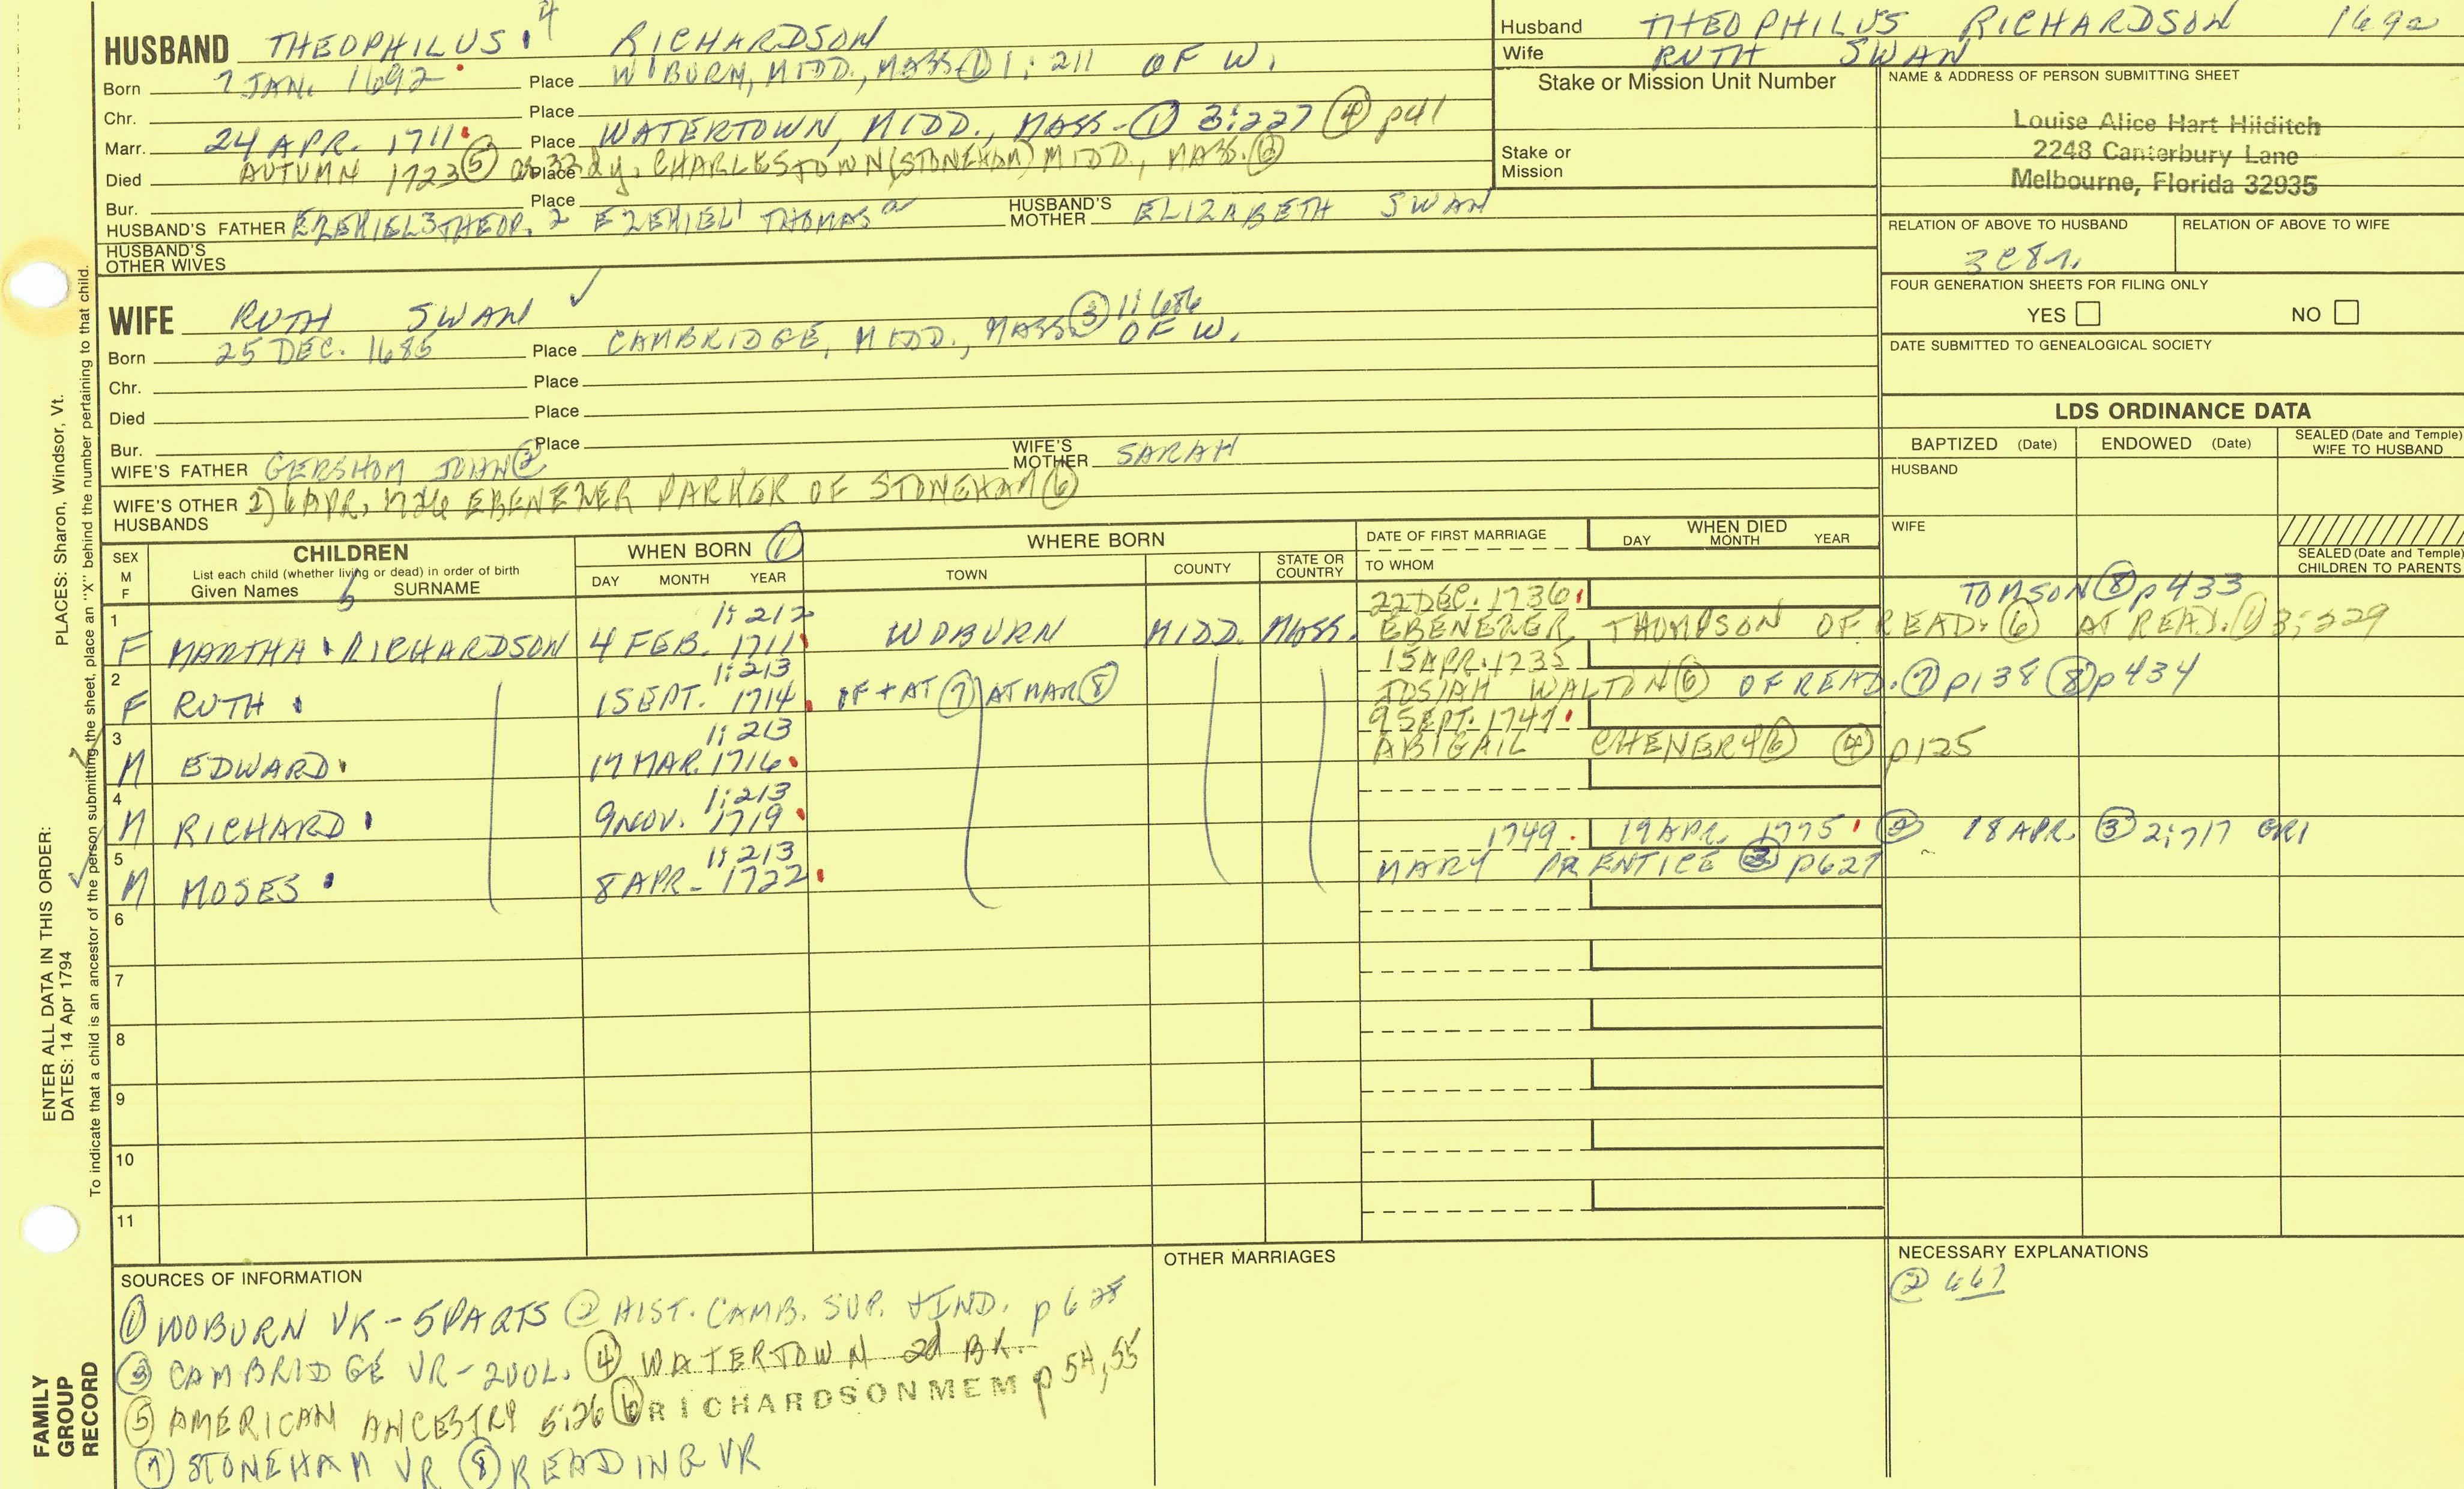 HUSBAND THEOPHILUS 4 RICHARDSON
Born 7 JAN. 1692 Place WOBURN, MIDD., MASS ① 1:211 OF W.
Chr. Place
Marr. 24 APR. 1711 Place WATERTOWN, MIDD., MASS- ① 3:227 ④ p41
Died AUTUMN 1723 ⑤ Place CHARLESTOWN (STONEHAM) MIDD., MASS.
Bur. Place
HUSBAND'S FATHER EZEKIEL 3 THEOP. 2 EZEKIEL 1 THOMAS a HUSBAND'S MOTHER ELIZABETH SWAN
HUSBAND'S OTHER WIVES
Husband THEOPHILUS RICHARDSON 1692
Wife RUTH SWAN
Stake or Mission Unit Number
Stake or Mission
NAME & ADDRESS OF PERSON SUBMITTING SHEET
Louise Alice Hart Hilditch
2248 Canterbury Lane
Melbourne, Florida 32935
RELATION OF ABOVE TO HUSBAND RELATION OF ABOVE TO WIFE
3C8r.
FOUR GENERATION SHEETS FOR FILING ONLY
YES NO
DATE SUBMITTED TO GENEALOGICAL SOCIETY
WIFE RUTH SWAN
Born 25 DEC. 1685 Place CAMBRIDGE, MIDD., MASS ③ 1:686 OF W.
Chr. Place
Died Place
Bur. Place
WIFE'S FATHER GERSHOM JOHN ② WIFE'S MOTHER SARAH
WIFE'S OTHER HUSBANDS 2) 6 APR. 1726 EBENEZER PARKER OF STONEHAM ⑥
LDS ORDINANCE DATA
BAPTIZED (Date) ENDOWED (Date) SEALED (Date and Temple) WIFE TO HUSBAND
HUSBAND
WIFE
SEALED (Date and Temple) CHILDREN TO PARENTS
SEX M F CHILDREN List each child (whether living or dead) in order of birth Given Names 5 SURNAME
WHEN BORN ① DAY MONTH YEAR
WHERE BORN TOWN COUNTY STATE OR COUNTRY
DATE OF FIRST MARRIAGE TO WHOM
WHEN DIED DAY MONTH YEAR
1 1:212 22 DEC. 1736 TOMSON ⑧ p433
F MARTHA RICHARDSON 4 FEB. 1711 WOBURN MIDD. MASS. EBENEZER THOMPSON OF READ. ⑥ AT READ. ① 3:229
2 1:213 15 APR. 1735
F RUTH 1 SEPT. 1714 OF + AT ⑦ AT MAR ⑧ JOSIAH WALTON ⑥ OF READ. ⑦ p138 ⑧ p434
3 1:213 9 SEPT. 1747
M EDWARD 17 MAR. 1716 ABIGAIL CHENERY ⑥ ④ p125
4 1:213
M RICHARD 9 NOV. 1719
5 1:213 1749 19 APR. 1775 ② 18 APR. ③ 2:717 GR1
M MOSES 8 APR- 1722 MARY PRENTICE ③ p627
6
7
8
9
10
11
SOURCES OF INFORMATION
① WOBURN VR - 5 PARTS ② HIST. CAMB. SUP. + IND. p628
③ CAMBRIDGE VR - 2VOL. ④ WATERTOWN 2d BK.
⑤ AMERICAN ANCESTRY 5:26 ⑥ RICHARDSON MEM p54,55
⑦ STONEHAM VR ⑧ READING VR
OTHER MARRIAGES
NECESSARY EXPLANATIONS
② 667
PLACES: Sharon, Windsor, Vt.
ENTER ALL DATA IN THIS ORDER:
DATES: 14 Apr 1794
To indicate that a child is an ancestor of the person submitting the sheet, place an "X" behind the number pertaining to that child.
FAMILY
GROUP
RECORD